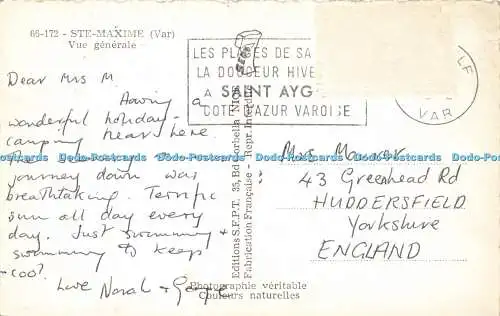 66-172 - STE-MAXIME (Var)
Vue générale
LES PLAGES DE SA
LA DOUCEUR HIVE
A SAINT AYG
COTE D'AZUR VAROISE
VAR
Dear Mrs M.
Having a
wonderful holiday -
camping near here.
The
journey down was
breathtaking. Terrific
sun all day every
day. Just swimming &
swimming to keep
coo?
Love Norah & George
Editions S.E.P.T. 35, Bd Gorbella NICE
Fabrication Française - Repr. Interdite
Mrs Manver
43 Greenhead Rd
HUDDERSFIELD
Yorkshire
ENGLAND
Photographie véritable
Couleurs naturelles
Dodo-Postcards Dodo-Postcards Dodo-Postcards Dodo-Postcards Dodo-Postcards Dodo-Postcards